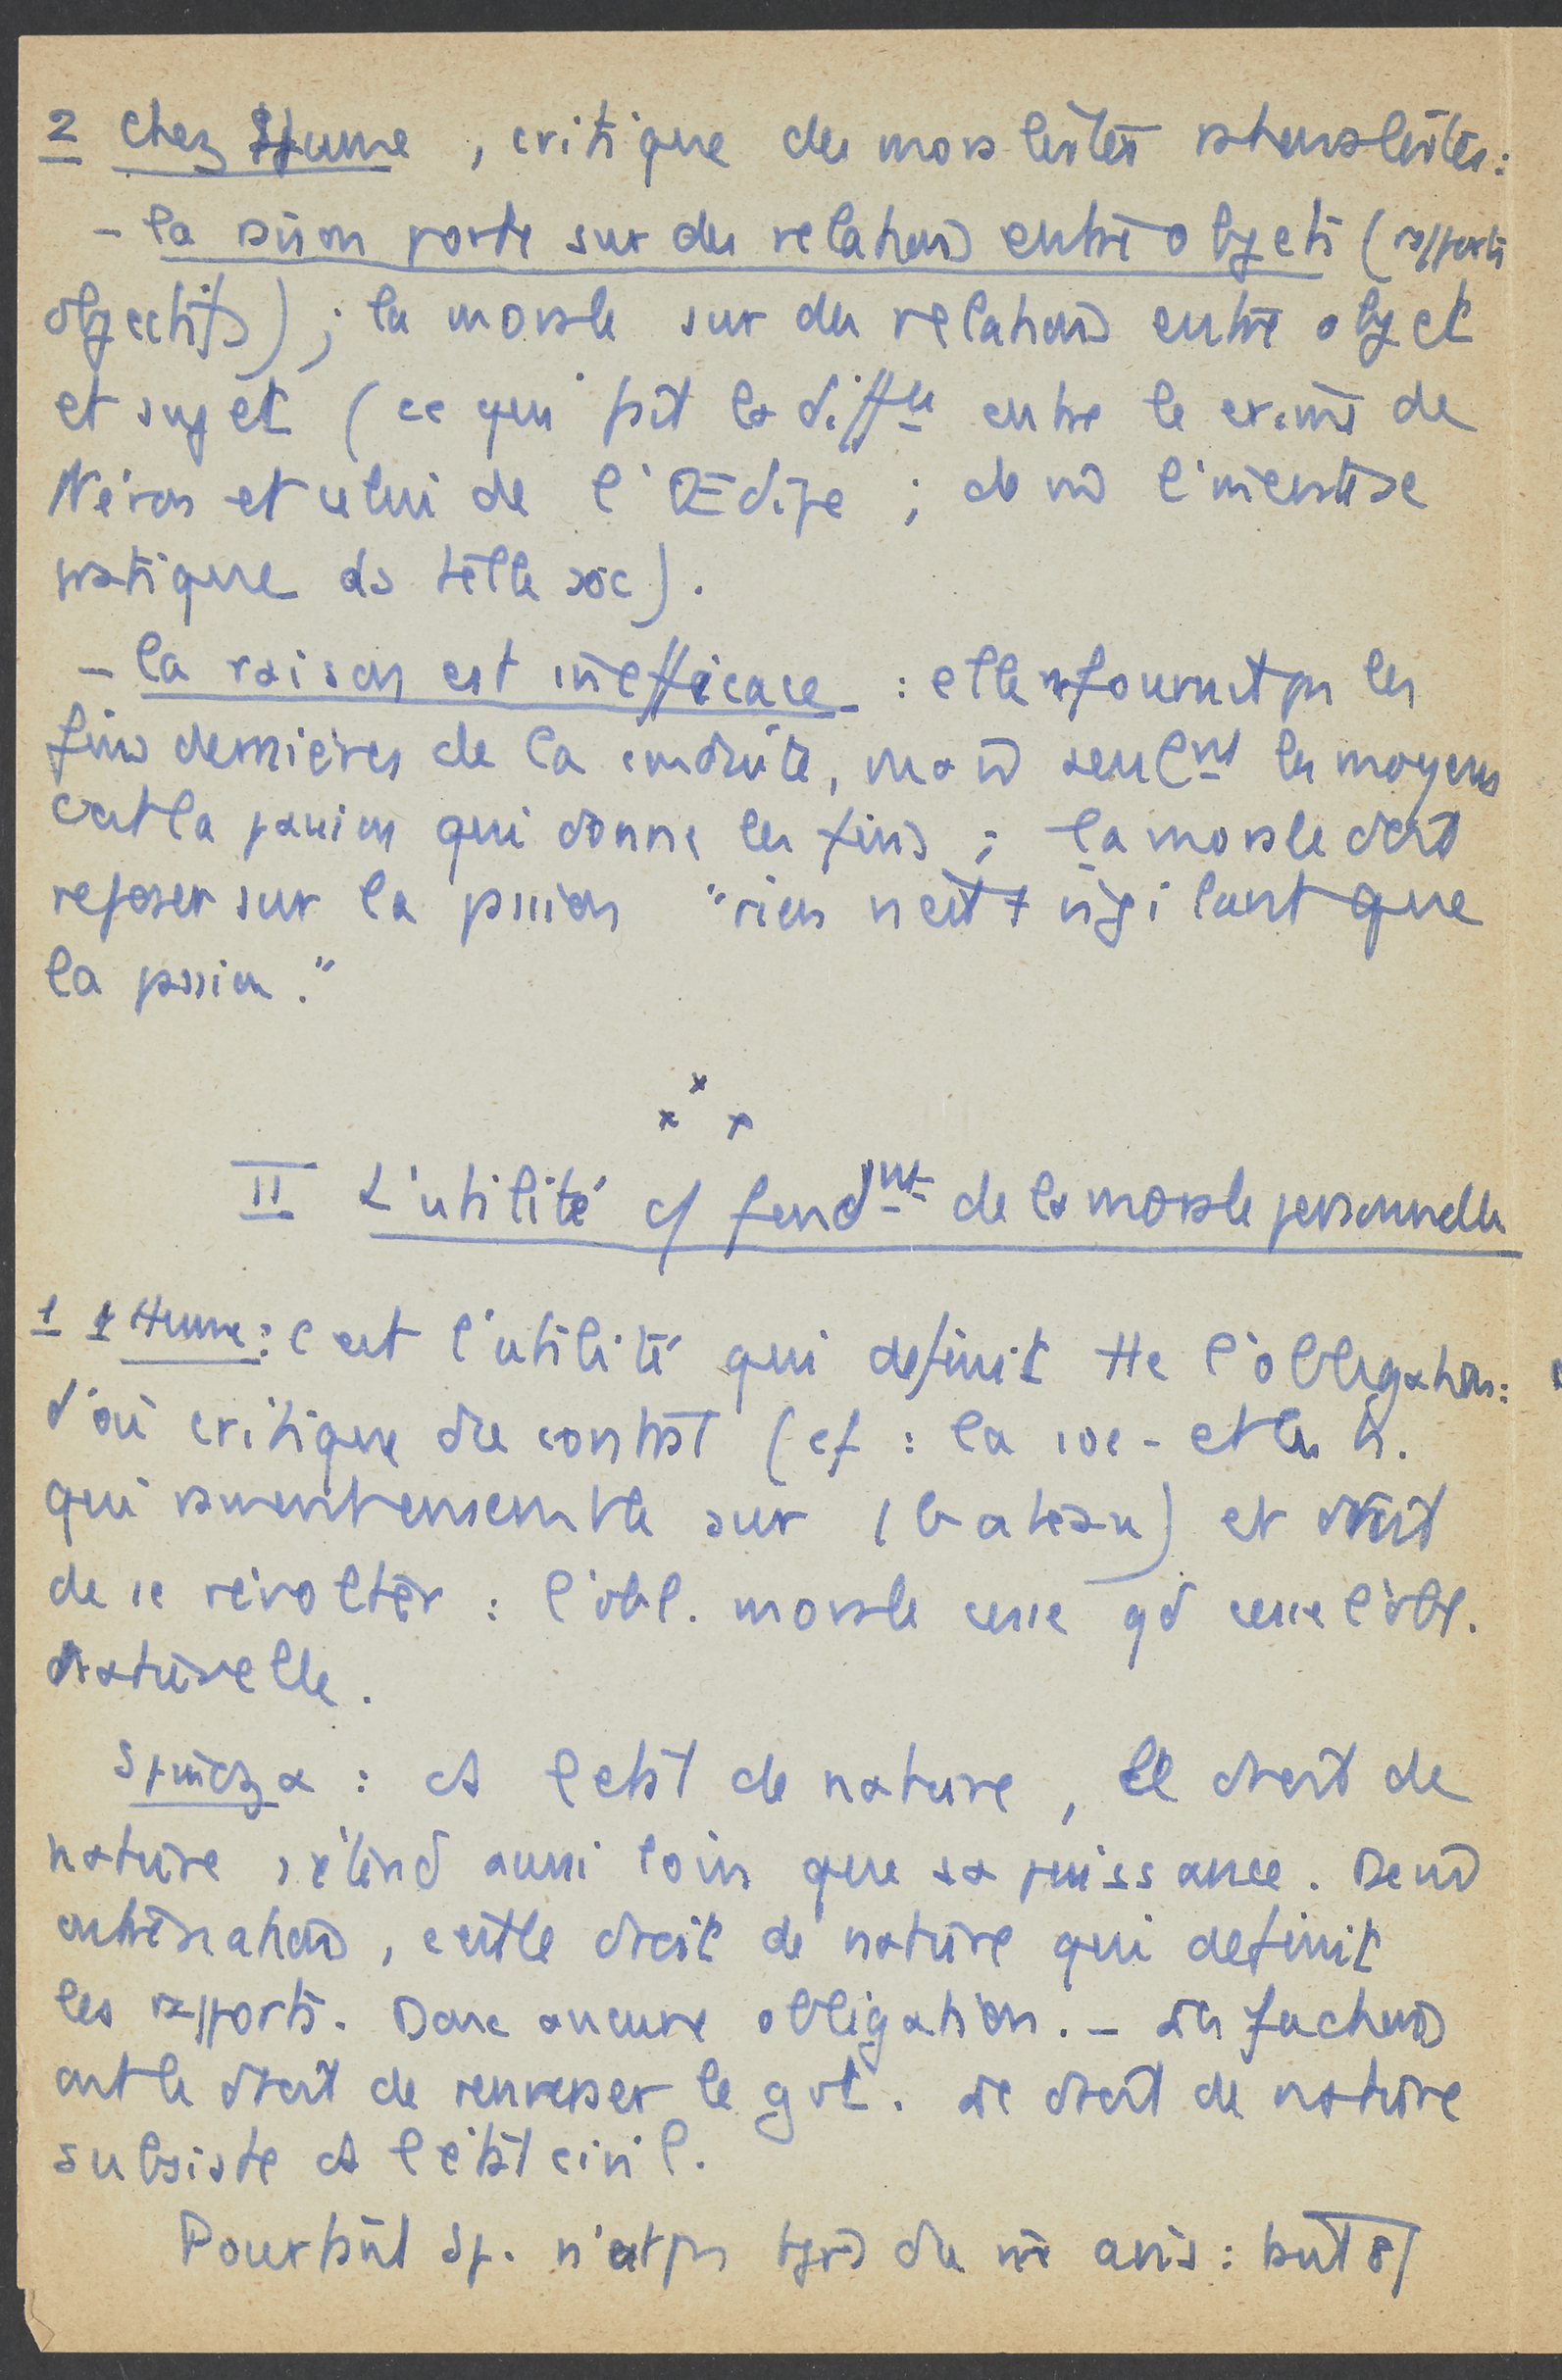 2 Chez Hume, critique des moralistes rationalistes :
- la raison porte sur des relations entre objets (rapports
objectifs) ; la morale sur des relations entre objet
et sujet (ce qui fait la diffce entre le crime de
Néron et celui de l'Œdipe ; de m̄ l'inceste se
pratique ds telle soc).
- la raison est inefficace : elle ne fournit pas les
fins dernières de la conduite, mais seulmt les moyens
c'est la passion qui donne les fins ; la morale doit
reposer sur la passion "rien n'est + vigilant que
la passion."
x x x
II L'utilité c/ fondmt de la morale personnelle
1 Hume : c'est l'utilité qui définit tte l'obligation :
d'où critique du contrat (cf : la soc - et les h.
qui rament ensemble sur 1 bateau) et droit
de se révolter : l'obl. morale cesse qd cesse l'obl.
naturelle.
Spinoza : ds l'état de nature, le droit de
nature s'étend aussi loin que sa puissance. De nd
les rapports. Donc aucune obligation. - Les factions
ont le droit de renverser le gvt. Le droit de nature
subsiste ds l'état civil.
Pourtant Sp. n'est pas tjrs du m̄ avis : tantôt